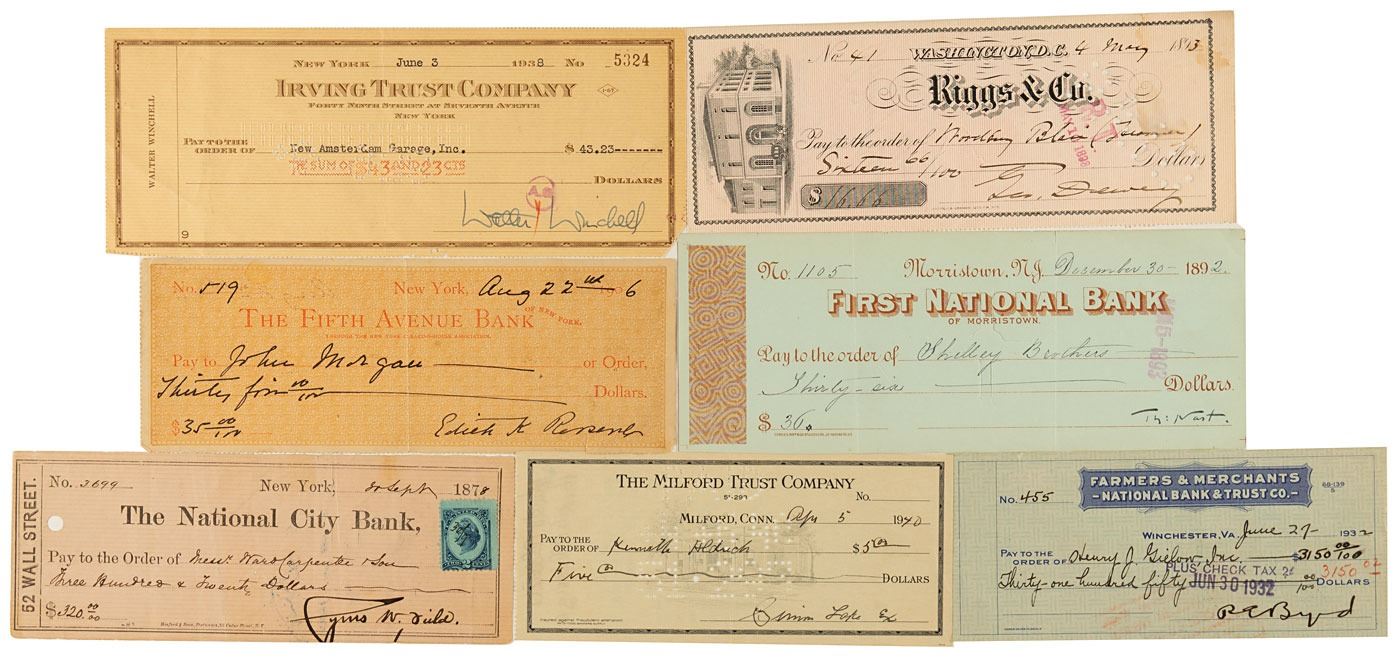 WALTER WINCHELL
NEW YORK June 3 1938 No 5324
IRVING TRUST COMPANY
FORTY NINTH STREET AT SEVENTH AVENUE
NEW YORK
PAY TO THE
ORDER OF New Amsterdam Garage, Inc. $ 43.23-------
THE SUM OF $43 AND 23 CTS
DOLLARS
Walter Winchell
9
No 41 WASHINGTON, D.C. 4 May 1893
Riggs & Co.
Pay to the order of Woodbury Blair
Sixteen 66/100 Dollars
$ 16.66
Geo. Dewey
No. 519 New York, Aug 22nd 1906
THE FIFTH AVENUE BANK OF NEW YORK.
THROUGH THE NEW YORK CLEARING-HOUSE ASSOCIATION.
Pay to John Morgan or Order,
Thirty five 00/100 Dollars.
$ 35 00/100
Edith K
No. 1105 Morristown, N.J. December 30 - 1892.
FIRST NATIONAL BANK
OF MORRISTOWN.
Pay to the order of Shelley Brothers
Thirty-six Dollars.
$ 36.
Th: Nast.
52 WALL STREET.
No. 2699 New York, 20 Sept 1878
The National City Bank,
Pay to the Order of Messr. Ward Carpenter & Son
Three Hundred & Twenty Dollars
$320.00/00
Cyrus W. Field.
THE MILFORD TRUST COMPANY
51-297
No.
MILFORD, CONN. Apr 5 1940
PAY TO THE
ORDER OF Kenneth Aldrich $5 00
Five DOLLARS
Simon Lake
FARMERS & MERCHANTS
-NATIONAL BANK & TRUST CO.-
68-139
5
No. 455
WINCHESTER, VA. June 27- 1932
PAY TO THE
ORDER OF Henry J. Gielow, Inc. $3150 00/100
PLUS CHECK TAX 2¢
3150 02
Thirty-one hundred fifty 00/100 DOLLARS
JUN 30 1932
R E Byrd